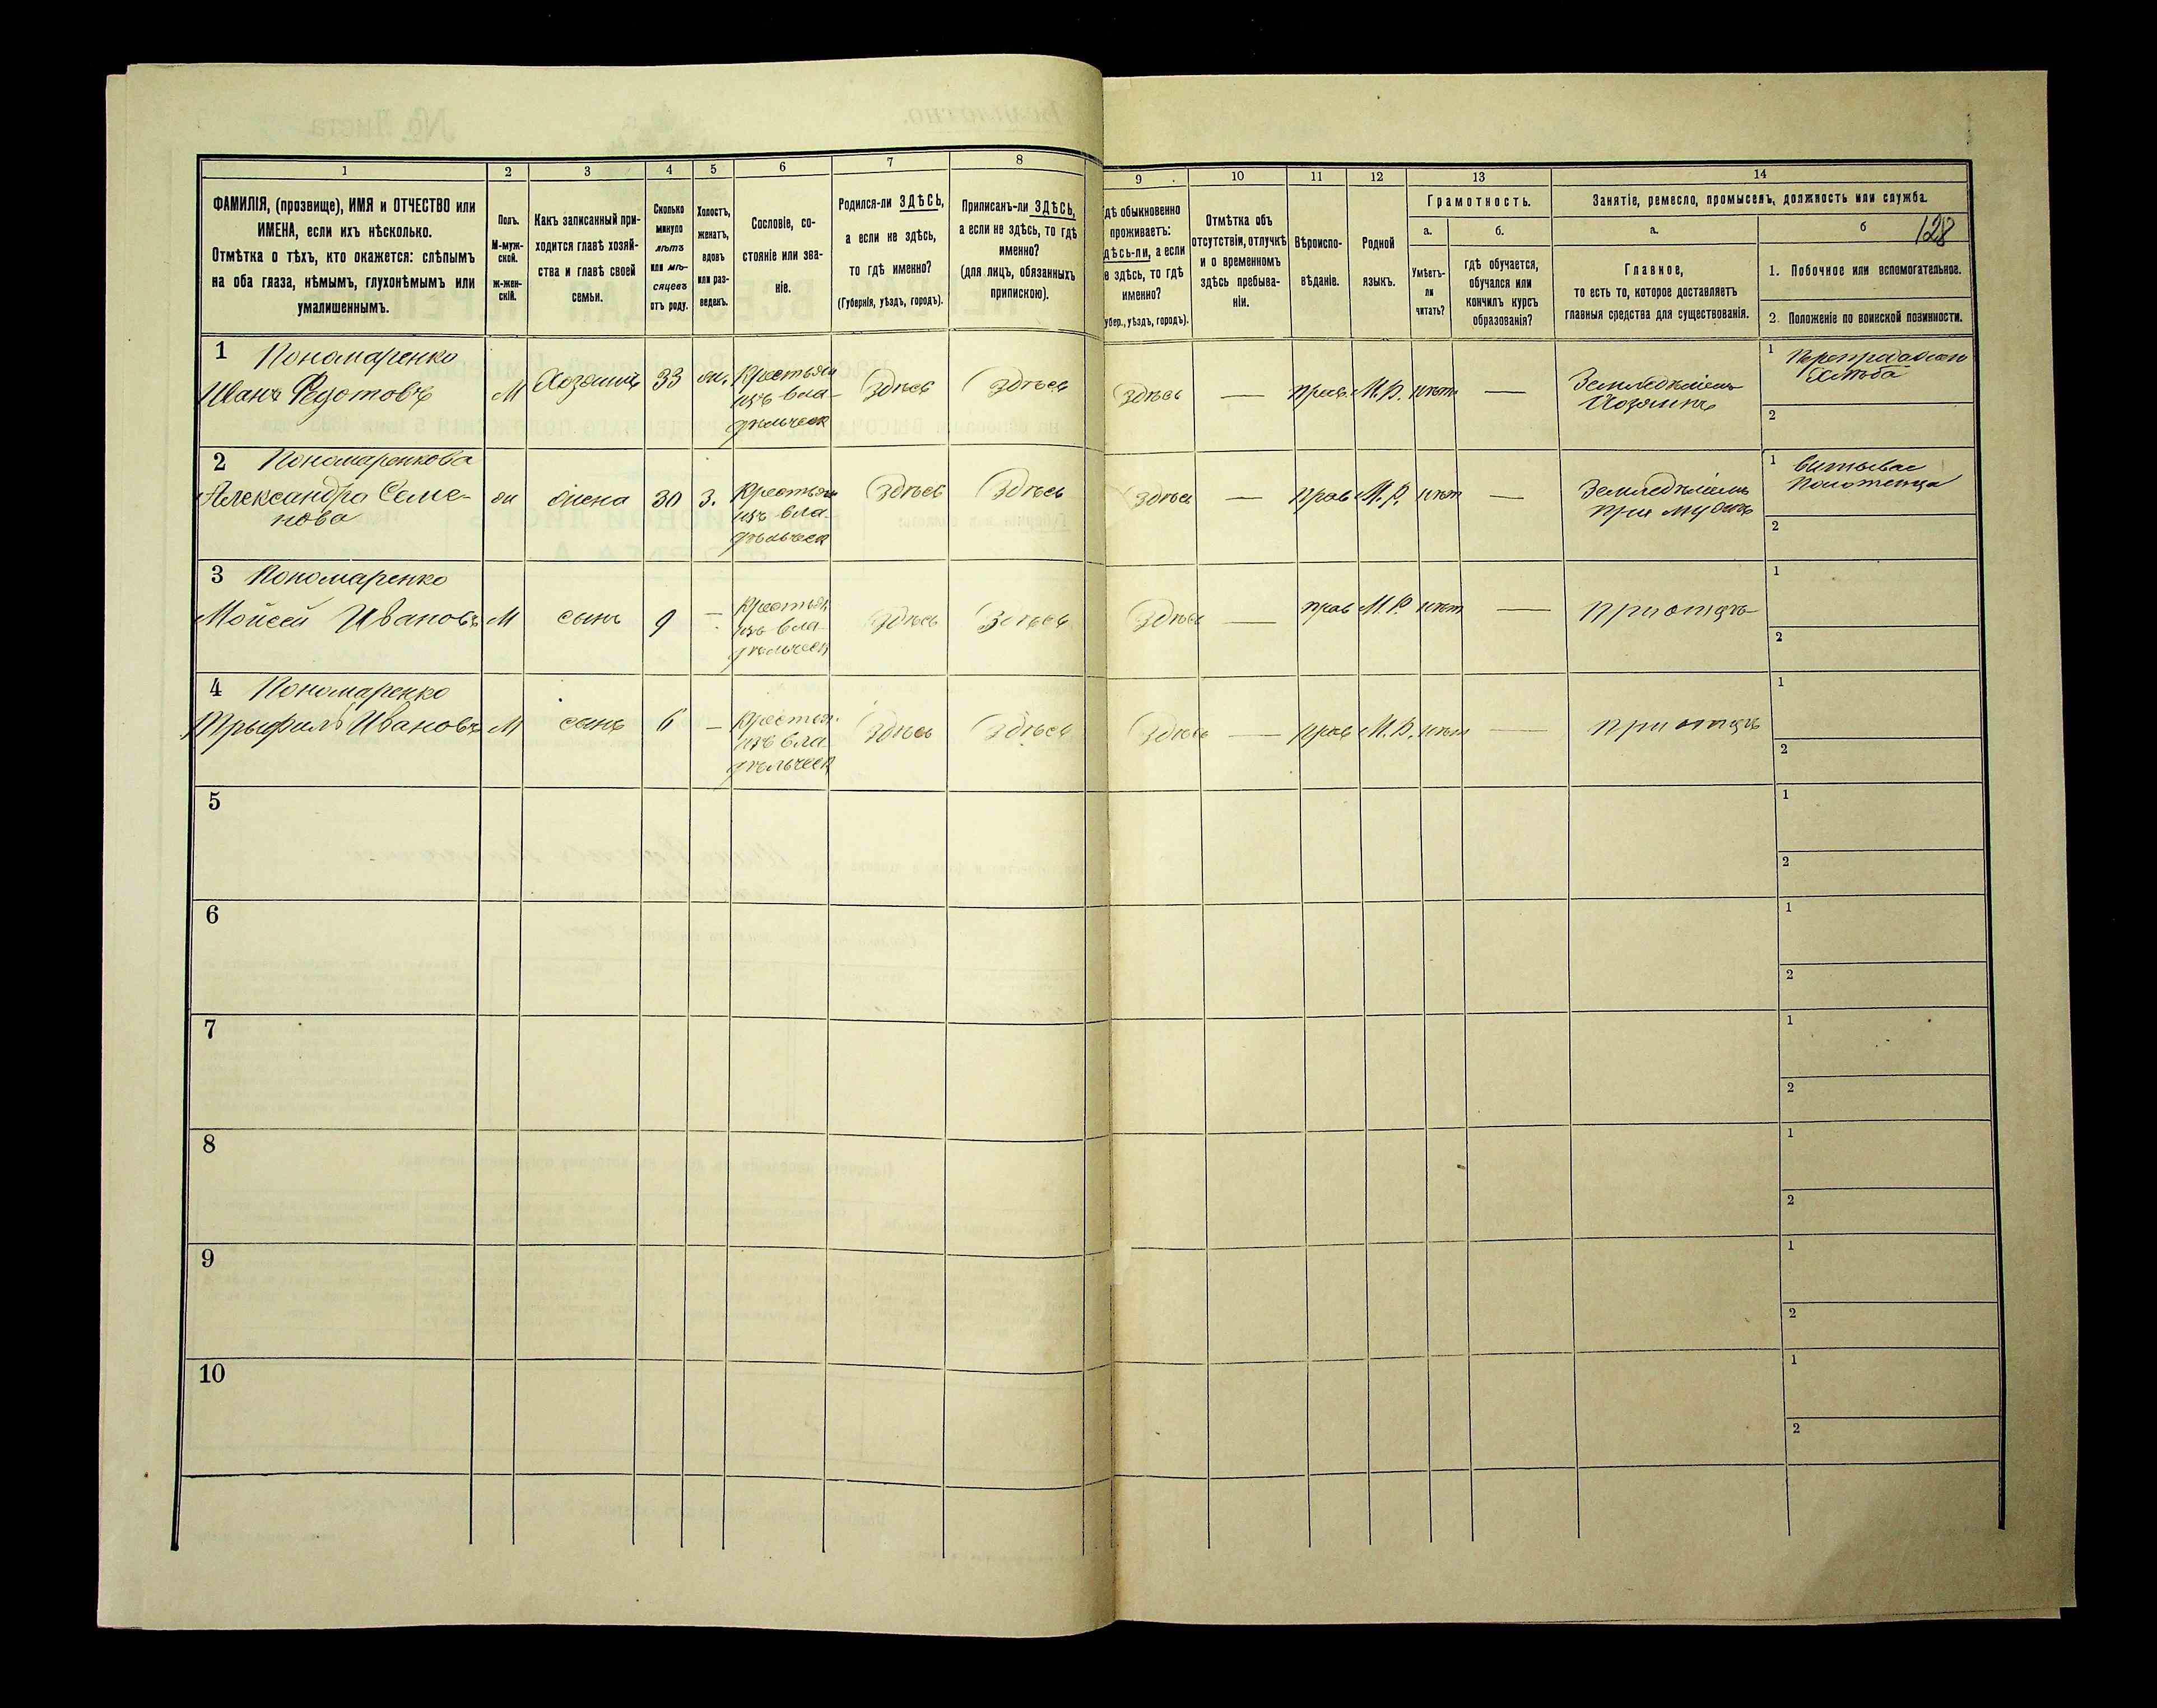 1 2 3 4 5 6 7 8 9 10 11 12 13 14
ФАМИЛІЯ, (прозвище), ИМЯ и ОТЧЕСТВО или
ИМЕНА, если ихъ нѣсколько.
Отмѣтка о тѣхъ, кто окажется: слѣпымъ
на оба глаза, нѣмымъ, глухонѣмымъ или
умалишеннымъ.
Полъ.
М-муж-
ской.
ж-жен-
скій.
Какъ записанный при-
ходится главѣ хозяй-
ства и главѣ своей
семьи.
Сколько
минуло
лѣтъ
или мѣ-
сяцевъ
отъ роду.
Холостъ,
женатъ,
вдовъ
или раз-
веденъ.
Сословіе, со-
стояніе или зва-
ніе.
Родился-ли ЗДѢСЬ,
а если не здѣсь,
то гдѣ именно?
(Губернія, уѣздъ, городъ).
Приписанъ-ли ЗДѢСЬ,
а если не здѣсь, то гдѣ
именно?
(для лицъ, обязанныхъ
припискою).
дѣ обыкновенно
проживаетъ:
дѣсь-ли, а если
е здѣсь, то гдѣ
именно?
убер., уѣздъ, городъ).
Отмѣтка объ
отсутствіи, отлучкѣ
и о временномъ
здѣсь пребыва-
ніи.
Вѣроиспо-
вѣданіе.
Родной
языкъ.
Грамотность.
а. б.
Умѣетъ-
ли
читать?
гдѣ обучается,
обучался или
кончилъ курсъ
образованія?
Занятіе, ремесло, промыселъ, должность или служба.
а. б 128
Главное,
то есть то, которое доставляетъ
главныя средства для существованія.
1. Побочное или вспомогательное.
2. Положеніе по воинской повинности.
1 Пономаренко
Иванъ Федотовъ М Хозяинъ 33 ж. Крестьян
изъ вла-
дѣльческ
Здѣсь Здѣсь Здѣсь — прав. М.Р. нѣтъ — Земледѣлецъ
Хозяинъ
1
хлѣба
2
2 Пономаренкова
Александра Семе-
нова
ж жена 30 З. Крестьян
изъ вла-
дѣльческ
Здѣсь Здѣсь Здѣсь — прав М.Р. нѣтъ — Земледѣлецъ
при мужѣ
1
2
3 Пономаренко
Мойсей Ивановъ М сынъ 9 — Крестьян
изъ вла-
дѣльческ
Здѣсь Здѣсь Здѣсь — прав М.Р. нѣтъ — при отцѣ
1
2
4 Пономаренко
Трыфилъ Ивановъ М сынъ 6 — Крестьян.
изъ вла-
дѣльческ
Здѣсь Здѣсь Здѣсь — прав М.Р. нѣтъ — при отцѣ
1
2
5
1
2
6
1
2
7
1
2
8
1
2
9
1
2
10
1
2